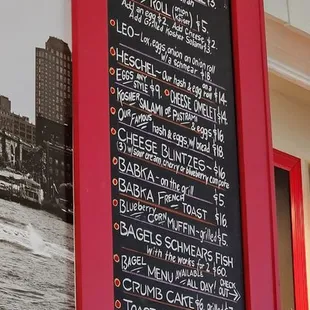 ROLL (onion, kaiser) $5.
Add an egg $2. Add Cheese $2.
Add Grilled Kosher Salami $3
LEO- Lox, eggs, onion on onion roll
w/a schmear $18.
HESCHEL- Our hash & egg on a roll $14.
EGGS ANY STYLE $9. CHEESE OMELET $14.
KOSHER SALAMI OR PASTRAMI & eggs $16.
OUR FAMOUS hash & eggs, w/bread $18.
CHEESE BLINTZES- $16.
(3) w/sour cream, cherry or blueberry compote
BABKA- on the grill $5.
BABKA FRENCH TOAST $16.
Blueberry CORN MUFFIN-grilled $5.
BAGELS SCHMEARS FISH
with the works $60.
BAGEL MENU AVAILABLE ALL DAY! CHECK OUT→
CRUMB CAKE $6. grilled $7
TOAST